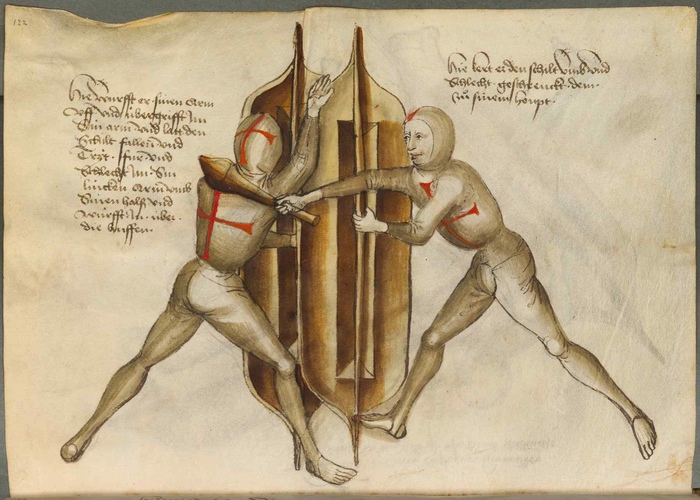 122
Hie wurfft er sinen Arm
uff und übergrifft Im
Sin arm und latt den
Schilt fallen und
Tryt für und
Schlecht Im Sin
lincken Arm umb
Sinen hals und
wurfft In über
die huffen.
Hie kert er den schilt umb und
Schlecht geschrenckt dem
zu sinem houpt.